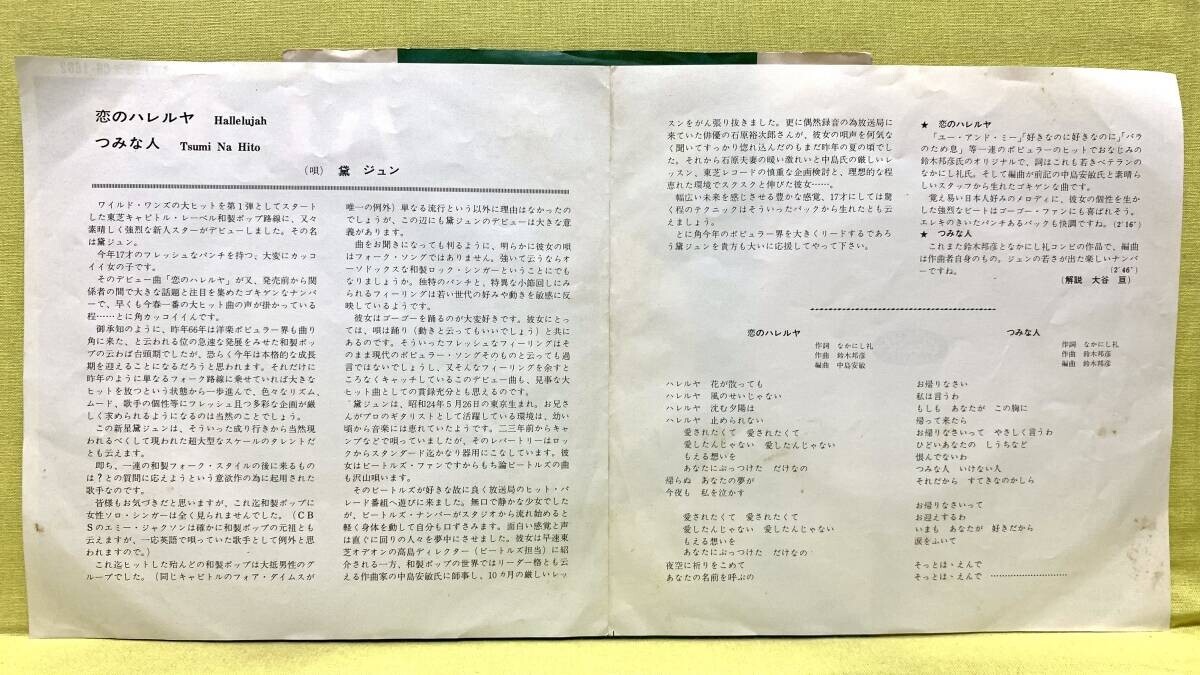 恋のハレルヤ Hallelujah
つみな人 Tsumi Na Hito
(唄) 黛 ジュン
ワイルド・ワンズの大ヒットを第1弾としてスタート
した東芝キャピトル・レーベル和製ポップ路線に、又々
素晴しく強烈な新人スターがデビューしました。その名
は黛ジュン。
今年17才のフレッシュなパンチを持つ、大変にカッコ
イイ女の子です。
そのデビュー曲「恋のハレルヤ」が又、発売前から関
係者の間で大きな話題と注目を集めたゴキゲンなナンバ
ーで、早くも今春一番の大ヒット曲の声が掛かっている
程……とに角カッコイイんです。
御承知のように、昨年66年は洋楽ポピュラー界も曲り
角に来た、と云われる位の急速な発展をみせた和製ポッ
プの云わば台頭期でしたが、恐らく今年は本格的な成長
期を迎えることになるだろうと思われます。それだけに
昨年のように単なるフォーク路線に乗せていれば大きな
ヒットを放つという状態から一歩進んで、色々なリズム、
ムード、歌手の個性等にフレッシュ且つ多彩な企画が厳
しく求められるようになるのは当然のことでしょう。
この新星黛ジュンは、そういった成り行きから当然現
われるべくして現われた超大型なスケールのタレントだ
とも云えます。
即ち、一連の和製フォーク・スタイルの後に来るもの
は?との質問に応えようという意欲作の為に起用された
歌手なのです。
皆様もお気づきだと思いますが、これ迄和製ポップに
女性ソロ・シンガーは全く見られませんでした。(CB
Sのエミー・ジャクソンは確かに和製ポップの元祖とも
云えますが、一応英語で唄っていた歌手として例外と思
われますので。)
これ迄ヒットした殆んどの和製ポップは大抵男性のグ
ループでした。(同じキャピトルのフォア・ダイムスが
唯一の例外) 単なる流行という以外に理由はなかったの
でしょうが、この辺にも黛ジュンのデビューは大きな意
義があります。
曲をお聞きになっても判るように、明らかに彼女の唄
はフォーク・ソングではありません。強いて云うならオ
ーソドックスな和製ロック・シンガーということにでも
なりましょうか。独特のパンチと、特異な小節回しにみ
られるフィーリングは若い世代の好みや動きを敏感に反
映しているようです。
彼女はゴーゴーを踊るのが大変好きです。彼女にとっ
ては、唄は踊り(動きと云ってもいいでしょう)と共に
あるのです。そういったフレッシュなフィーリングはそ
のまま現代のポピュラー・ソングそのものと云っても過
言ではないでしょうし、又そんなフィーリングを余すと
ころなくキャッチしているこのデビュー曲も、見事な大
ヒット曲としての貫録充分とも思えるのです。
黛ジュンは、昭和24年5月26日の東京生まれ。お兄さ
んがプロのギタリストとして活躍している環境は、幼い
頃から音楽には恵れていたようです。二三年前からキャ
ンプなどで唄っていましたが、そのレパートリーはロッ
クからスタンダード迄かなり器用にこなしています。彼
女はビートルズ・ファンですからもち論ビートルズの曲
も沢山唄います。
そのビートルズが好きな故に良く放送局のヒット・パ
レード番組へ遊びに来ました。無口で静かな少女でした
が、ビートルズ・ナンバーがスタジオから流れ始めると
軽く身体を動して自分も口ずさみます。面白い感覚と声
は直ぐに回りの人々を夢中にさせました。彼女は早速東
芝オデオンの高島ディレクター(ビートルズ担当)に紹
介される一方、和製ポップの世界ではリーダー格とも云
える作曲家の中島安敏氏に師事し、10カ月の厳しいレッ
スンをがん張り抜きました。更に偶然録音の為放送局に
来ていた俳優の石原裕次郎さんが、彼女の唄声を何気な
く聞いてすっかり惚れ込んだのもまだ昨年の夏の頃でし
た。それから石原夫妻の暖い激れいと中島氏の厳しいレ
ッスン、東芝レコードの慎重な企画検討と、理想的な程
恵れた環境でスクスクと伸びた彼女……。
幅広い未来を感じさせる豊かな感覚、17才にしては驚
く程のテクニックはそういったバックから生れたとも云
えましょう。
とに角今年のポピュラー界を大きくリードするであろ
う黛ジュンを貴方も大いに応援してやって下さい。
★ 恋のハレルヤ
「ユー・アンド・ミー」「好きなのに好きなのに」「バラ
のため息」等一連のポピュラーのヒットでおなじみの
鈴木邦彦氏のオリジナルで、詞はこれも若きベテランの
なかにし礼氏。そして編曲が前記の中島安敏氏と素晴ら
しいスタッフから生れたゴキゲンな曲です。
覚え易い日本人好みのメロディに、彼女の個性を生か
した強烈なビートはゴーゴー・ファンにも喜ばれそう。
エレキのきいたパンチあるバックも快調ですね。(2′16″)
★ つみな人
これまた鈴木邦彦となかにし礼コンビの作品で、編曲
は作曲者自身のもの。ジュンの若さが出た楽しいナンバ
ーですね。 (2′46″)
(解説 大谷 亘)
恋のハレルヤ
作詞 なかにし礼
作曲 鈴木邦彦
編曲 中島安敏
ハレルヤ 花が散っても
ハレルヤ 風のせいじゃない
ハレルヤ 沈む夕陽は
ハレルヤ 止められない
愛されたくて 愛されたくて
愛したんじゃない 愛したんじゃない
もえる想いを
あなたにぶっつけた だけなの
帰らぬ あなたの夢が
今夜も 私を泣かす
愛されたくて 愛されたくて
愛したんじゃない 愛したんじゃない
もえる想いを
あなたにぶっつけた だけなの
夜空に祈りをこめて
あなたの名前を呼ぶの
つみな人
作詞 なかにし礼
作曲 鈴木邦彦
編曲 鈴木邦彦
お帰りなさい
私は言うわ
もしも あなたが この胸に
帰って来たら
お帰りなさいって やさしく言うわ
ひどいあなたの しうちなど
恨んでないわ
つみな人 いけない人
それだから すてきなのかしら
お帰りなさいって
お迎えするわ
いまも あなたが 好きだから
涙をふいて
そっとほゝえんで
そっとほゝえんで ……………………